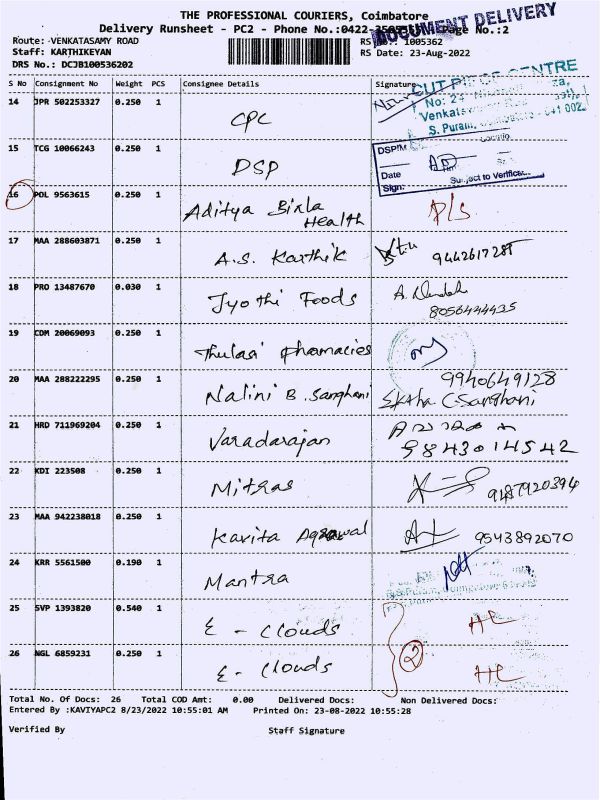 THE PROFESSIONAL COURIERS, Coimbatore
DOCUMENT DELIVERY
Delivery Runsheet - PC2 - Phone No.:0422 Page No.:2
Route: -VENKATASAMY ROAD RS No.: 1005362
Staff: KARTHIKEYAN RS Date: 23-Aug-2022
DRS No.: DCJB100536202
S No Consignment No Weight PCS Consignee Details Signature
14 JPR 502253327 0.250 1 CPC
CUT PIECE CENTRE
No: 24
Venkat
S. Puram, 641 002
15 TCG 10066243 0.250 1 DSP
Date
Sign:
Subject to Verific
16 POL 9563615 0.250 1 Aditya Birla Health P/S
17 MAA 288603871 0.250 1 A.S. Karthik 9442617285
18 PRO 13487670 0.030 1 Jyothi Foods 8056444435
19 COM 20069093 0.250 1 Thulasi Phamacies
20 MAA 288222295 0.250 1 Nalini B. Sanghani 9940649128
C. Sanghani
21 HRD 711969204 0.250 1 Varadarajan 9843014542
22 KDI 223508 0.250 1 Mitras 9487920394
23 MAA 942238018 0.250 1 Kavita Agrawal 9543892070
24 KRR 5561500 0.190 1 Mantra
25 SVP 1393820 0.540 1 E - Clouds HC
2
26 NGL 6859231 0.250 1 E - Clouds HC
Total No. Of Docs: 26 Total COD Amt: 0.00 Delivered Docs: Non Delivered Docs:
Entered By :KAVIYAPC2 8/23/2022 10:55:01 AM Printed On: 23-08-2022 10:55:28
Verified By Staff Signature